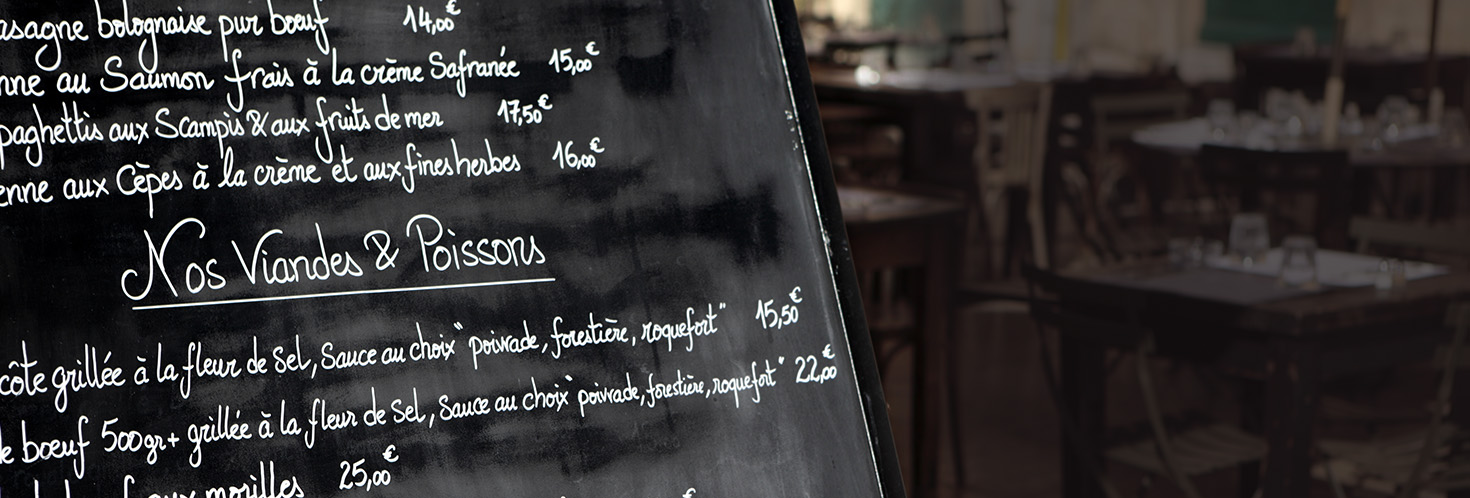 asagne bolognaise pur bœuf 14,00€
nne au Saumon frais à la crème Safranée 15,00€
paghettis aux Scampis & aux fruits de mer 17,50€
enne aux Cèpes à la crème et aux fines herbes 16,00€
Nos Viandes & Poissons
côte grillée à la fleur de Sel, Sauce au choix "poivrade, forestière, roquefort" 15,50€
e bœuf 500gr+ grillée à la fleur de Sel, Sauce au choix "poivrade, forestière, roquefort" 22,00€
aux morilles 25,00€